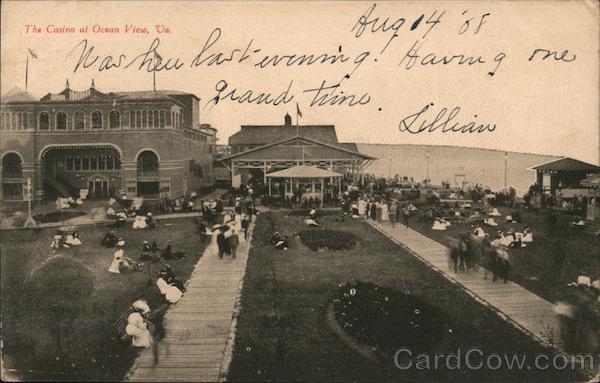 The Casino at Ocean View, Va.
Aug 14 '08
Was here last evening. Having one
Grand time.
Lillian
CardCow.com